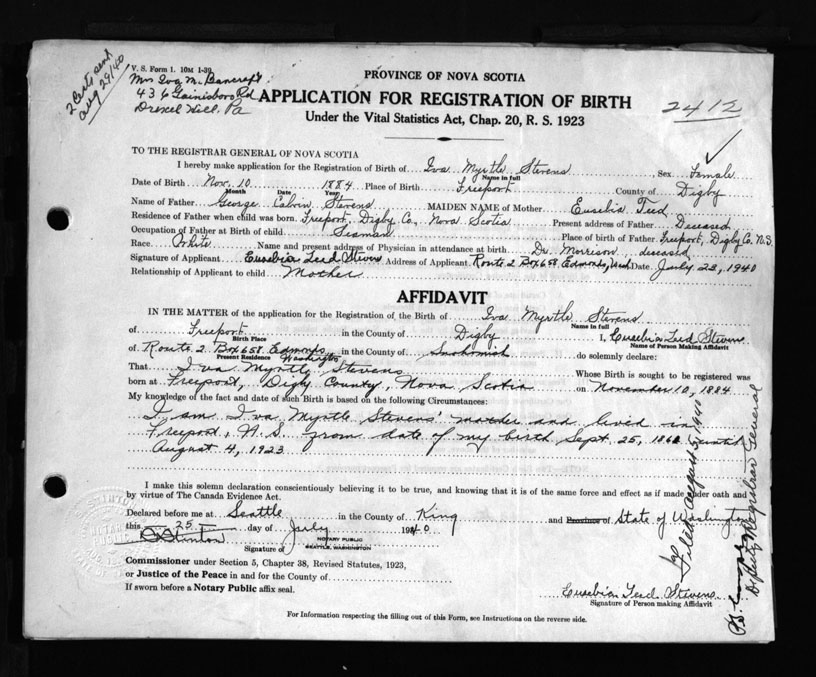 2 Certs sent
Aug 29/40
V. S. Form 1. 10M 1-39
Mrs Iva M. Bancroft
436 Gainisboro Rd
Drexel Hill, Pa
PROVINCE OF NOVA SCOTIA
APPLICATION FOR REGISTRATION OF BIRTH
Under the Vital Statistics Act, Chap. 20, R. S. 1923
2412
TO THE REGISTRAR GENERAL OF NOVA SCOTIA
I hereby make application for the Registration of Birth of Iva Myrtle Stevens Sex Female
Name in full
Date of Birth Nov. 10 1884 Place of Birth Freeport County of Digby
Month Date Year
Name of Father George Calvin Stevens MAIDEN NAME of Mother Eusebia Teed
Residence of Father when child was born. Freeport, Digby Co. Nova Scotia Present address of Father Deceased
Occupation of Father at Birth of child Seaman Place of birth of Father Freeport, Digby Co. N.S.
Race White Name and present address of Physician in attendance at birth Dr. Morrison deceased
Signature of Applicant Eusebia Teed Stevens Address of Applicant Route 2 Box 658 Edmonds, Wash Date July 23, 1940
Relationship of Applicant to child Mother
AFFIDAVIT
IN THE MATTER of the application for the Registration of the Birth of Iva Myrtle Stevens
Name in full
of Freeport in the County of Digby I, Eusebia Teed Stevens
Birth Place Name of Person Making Affidavit
of Route 2 Box 658 Edmonds Washington in the County of Snohomish do solemnly declare:
Present Residence
That Iva Myrtle Stevens Whose Birth is sought to be registered was
born at Freeport, Digby County, Nova Scotia on November 10, 1884
My knowledge of the fact and date of such Birth is based on the following Circumstances:
I am Iva Myrtle Stevens' mother and lived in
Freeport, N.S. from date of my birth Sept. 25, 1860 until
August 4, 1923
I make this solemn declaration conscientiously believing it to be true, and knowing that it is of the same force and effect as if made under oath and
by virtue of The Canada Evidence Act.
Declared before me at Seattle in the County of King and Province of State of Washington
this 25 day of July 1940
NOTARY PUBLIC
SEATTLE, WASHINGTON
Signature of
Commissioner under Section 5, Chapter 38, Revised Statutes, 1923,
or Justice of the Peace in and for the County of
If sworn before a Notary Public affix seal.
Eusebia Teed Stevens
Signature of Person making Affidavit
For Information respecting the filling out of this Form, see Instructions on the reverse side.
Filed August 5, 1940
Deputy Registrar General